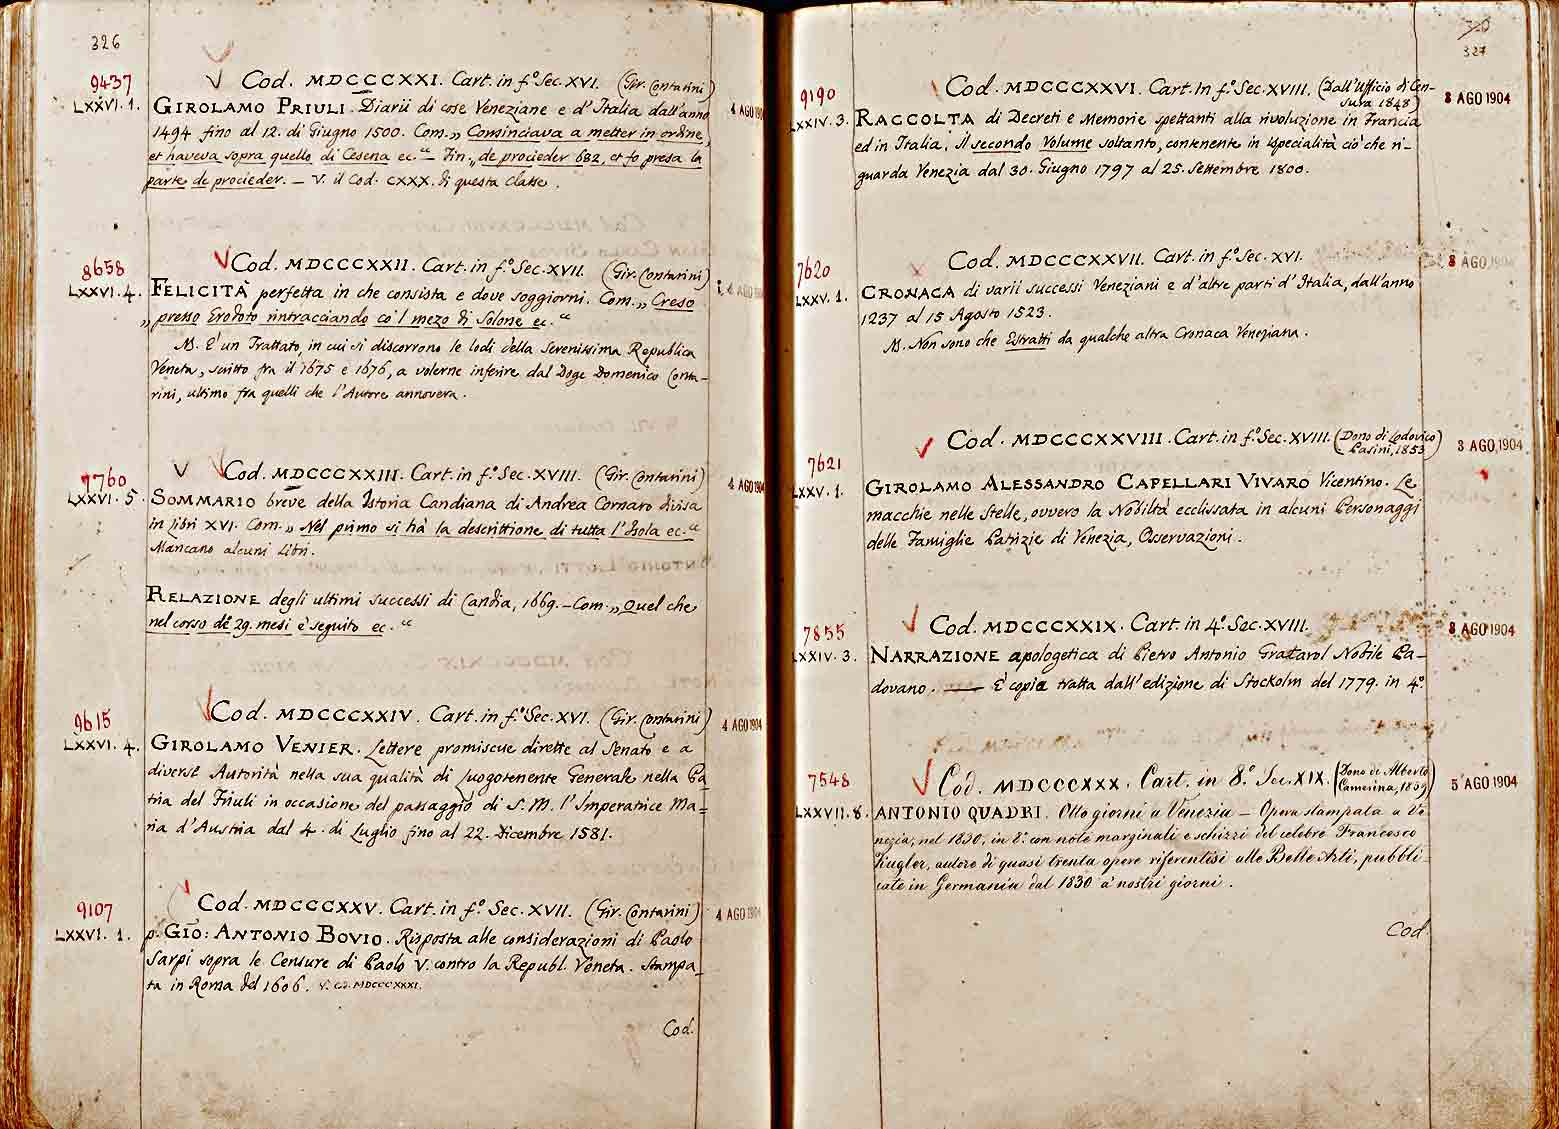 326
9437
V Cod. MDCCCXXI. Cart. in f.o Sec. XVI. (Gir. Contarini)
LXXVI. 1. GIROLAMO PRIULI. Diarii di cose Veneziane e d'Italia dall'anno 4 AGO 1904
1494 fino al 12. di Giugno 1500. Com. „ Cominciava a metter in ordine,
et haveva sopra quello di Cesena ec.“ — Fin. „ de procieder 682, et fo presa la
parte de procieder. — V. il Cod. CXXX. di questa Classe.
8658
V Cod. MDCCCXXII. Cart. in f.o Sec. XVII. (Gir. Contarini)
LXXVI. 4. FELICITÀ perfetta in che consista e dove soggiorni. Com. „ Creso 4 AGO
„ presso Erodoto rintracciando co'l mezo di Solone ec.“
NB. E' un Trattato, in cui si discorrono le lodi della Serenissima Republica
Veneta, scritto fra il 1675 e 1676, a volerne inferire dal Doge Domenico Conta-
rini, ultimo fra quelli che l'Autore annovera.
7760
V V Cod. MDCCCXXIII. Cart. in f.o Sec. XVIII. (Gir. Contarini)
LXXVI. 5. SOMMARIO breve della Istoria Candiana di Andrea Cornaro divisa 4 AGO 1904
in libri XVI. Com. „ Nel primo si hà la descrittione di tutta l'Isola ec.“
Mancano alcuni Libri.
RELAZIONE degli ultimi successi di Candia, 1669. — Com. „ Quel che
nel corso de 29. mesi è seguito ec.“
9615
V Cod. MDCCCXXIV. Cart. in f.o Sec. XVI. (Gir. Contarini) 4 AGO 1904
LXXVI. 4. GIROLAMO VENIER. Lettere promiscue dirette al Senato e a
diverse Autorità nella sua qualità di Luogotenente Generale nella Pa
tria del Friuli in occasione del passaggio di S. M. l'Imperatrice Ma=
ria d'Austria dal 4. di Luglio fino al 22. Dicembre 1581.
9107
V Cod. MDCCCXXV. Cart. in f.o Sec. XVII. (Gir. Contarini) 4 AGO 1904
LXXVI. 1. p. GIO: ANTONIO BOVIO. Risposta alle considerazioni di Paolo
Sarpi sopra le Censure di Paolo V. contro la Republ. Veneta. Stampa_
ta in Roma del 1606. V. Cod. MDCCCXXXI.
Cod.
327
9190
Cod. MDCCCXXVI. Cart. In f.o Sec. XVIII. (Dall'Ufficio di Cen-
sura 1848) 3 AGO 1904
LXXIV. 3. RACCOLTA di Decreti e Memorie spettanti alla rivoluzione in Francia
ed in Italia. Il secondo Volume soltanto, contenente in ispecialità ciò che ri-
guarda Venezia dal 30. Giugno 1797 al 25. Settembre 1800.
7620
Cod. MDCCCXXVII. Cart. in f.o Sec. XVI. 3 AGO 1904
LXXV. 1. CRONACA di varii successi Veneziani e d'altre parti d'Italia, dall'anno
1237 al 15 Agosto 1523.
NB. Non sono che Estratti da qualche altra Cronaca Veneziana.
7621
V Cod. MDCCCXXVIII. Cart. in f.o Sec. XVIII. (Dono di Lodovico
Pasini, 1853) 3 AGO 1904
LXXV. 1. GIROLAMO ALESSANDRO CAPELLARI VIVARO Vicentino. Le
macchie nelle Stelle, ovvero la Nobiltà ecclissata in alcuni Personaggi
delle Famiglie Patrizie di Venezia, Osservazioni.
7855
V Cod. MDCCCXXIX. Cart. in 4.o Sec. XVIII. 3 AGO 1904
LXXIV. 3. NARRAZIONE apologetica di Pietro Antonio Gratarol Nobile Pa-
dovano. — E' copia tratta dall'edizione di Stockolm del 1779. in 4.o
7548
V Cod. MDCCCXXX. Cart. in 8.o Sec. XIX. (Dono de Alberto
Camerina, 1859) 5 AGO 1904
LXXVII. 8. ANTONIO QUADRI. Otto giorni a Venezia — Opera stampata a Ve
nezia, nel 1830, in 8.o con note marginali e schizzi del celebre Francesco
Kugler, autore di quasi trenta opere riferentisi alle Belle Arti, pubbli-
cate in Germania dal 1830 a' nostri giorni.
Cod.